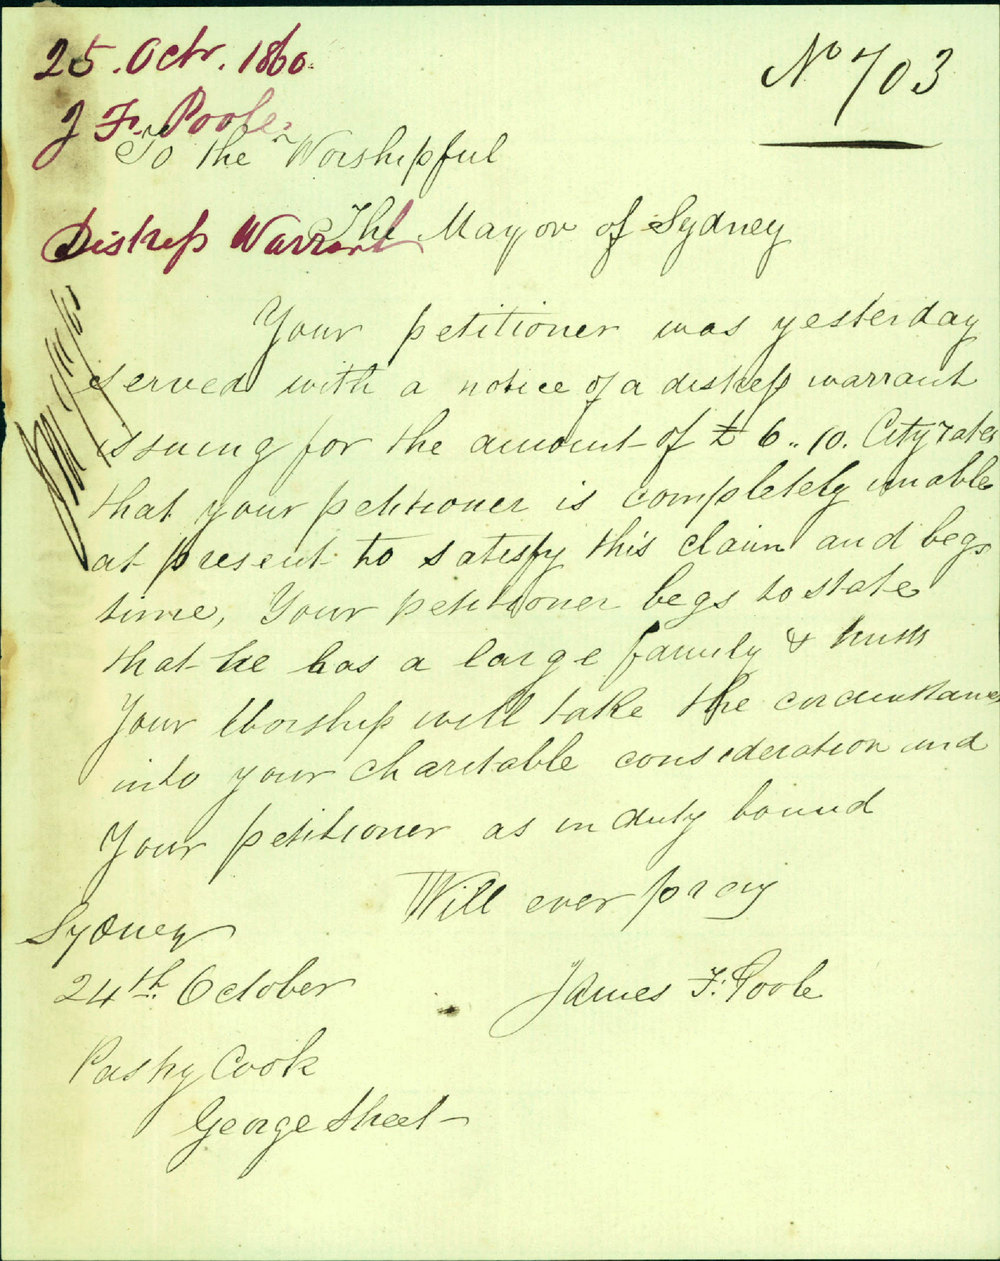 25. Octr. 1860.
No 703
J F. Poole.
To the Worshipful
Distress Warrant
The Mayor of Sydney
Your petitioner was yesterday
served with a notice of a distress warrant
issuing for the amount of £6..10. City rates
that your petitioner is completely unable
at present to satisfy this claim and begs
time, Your petitioner begs to state
that he has a large family & trusts
Your Worship will take the circumstances
into your charitable consideration and
Your petitioner as in duty bound
Will ever pray
Sydney
24th October
James F. Poole
Pastry Cook
George Street